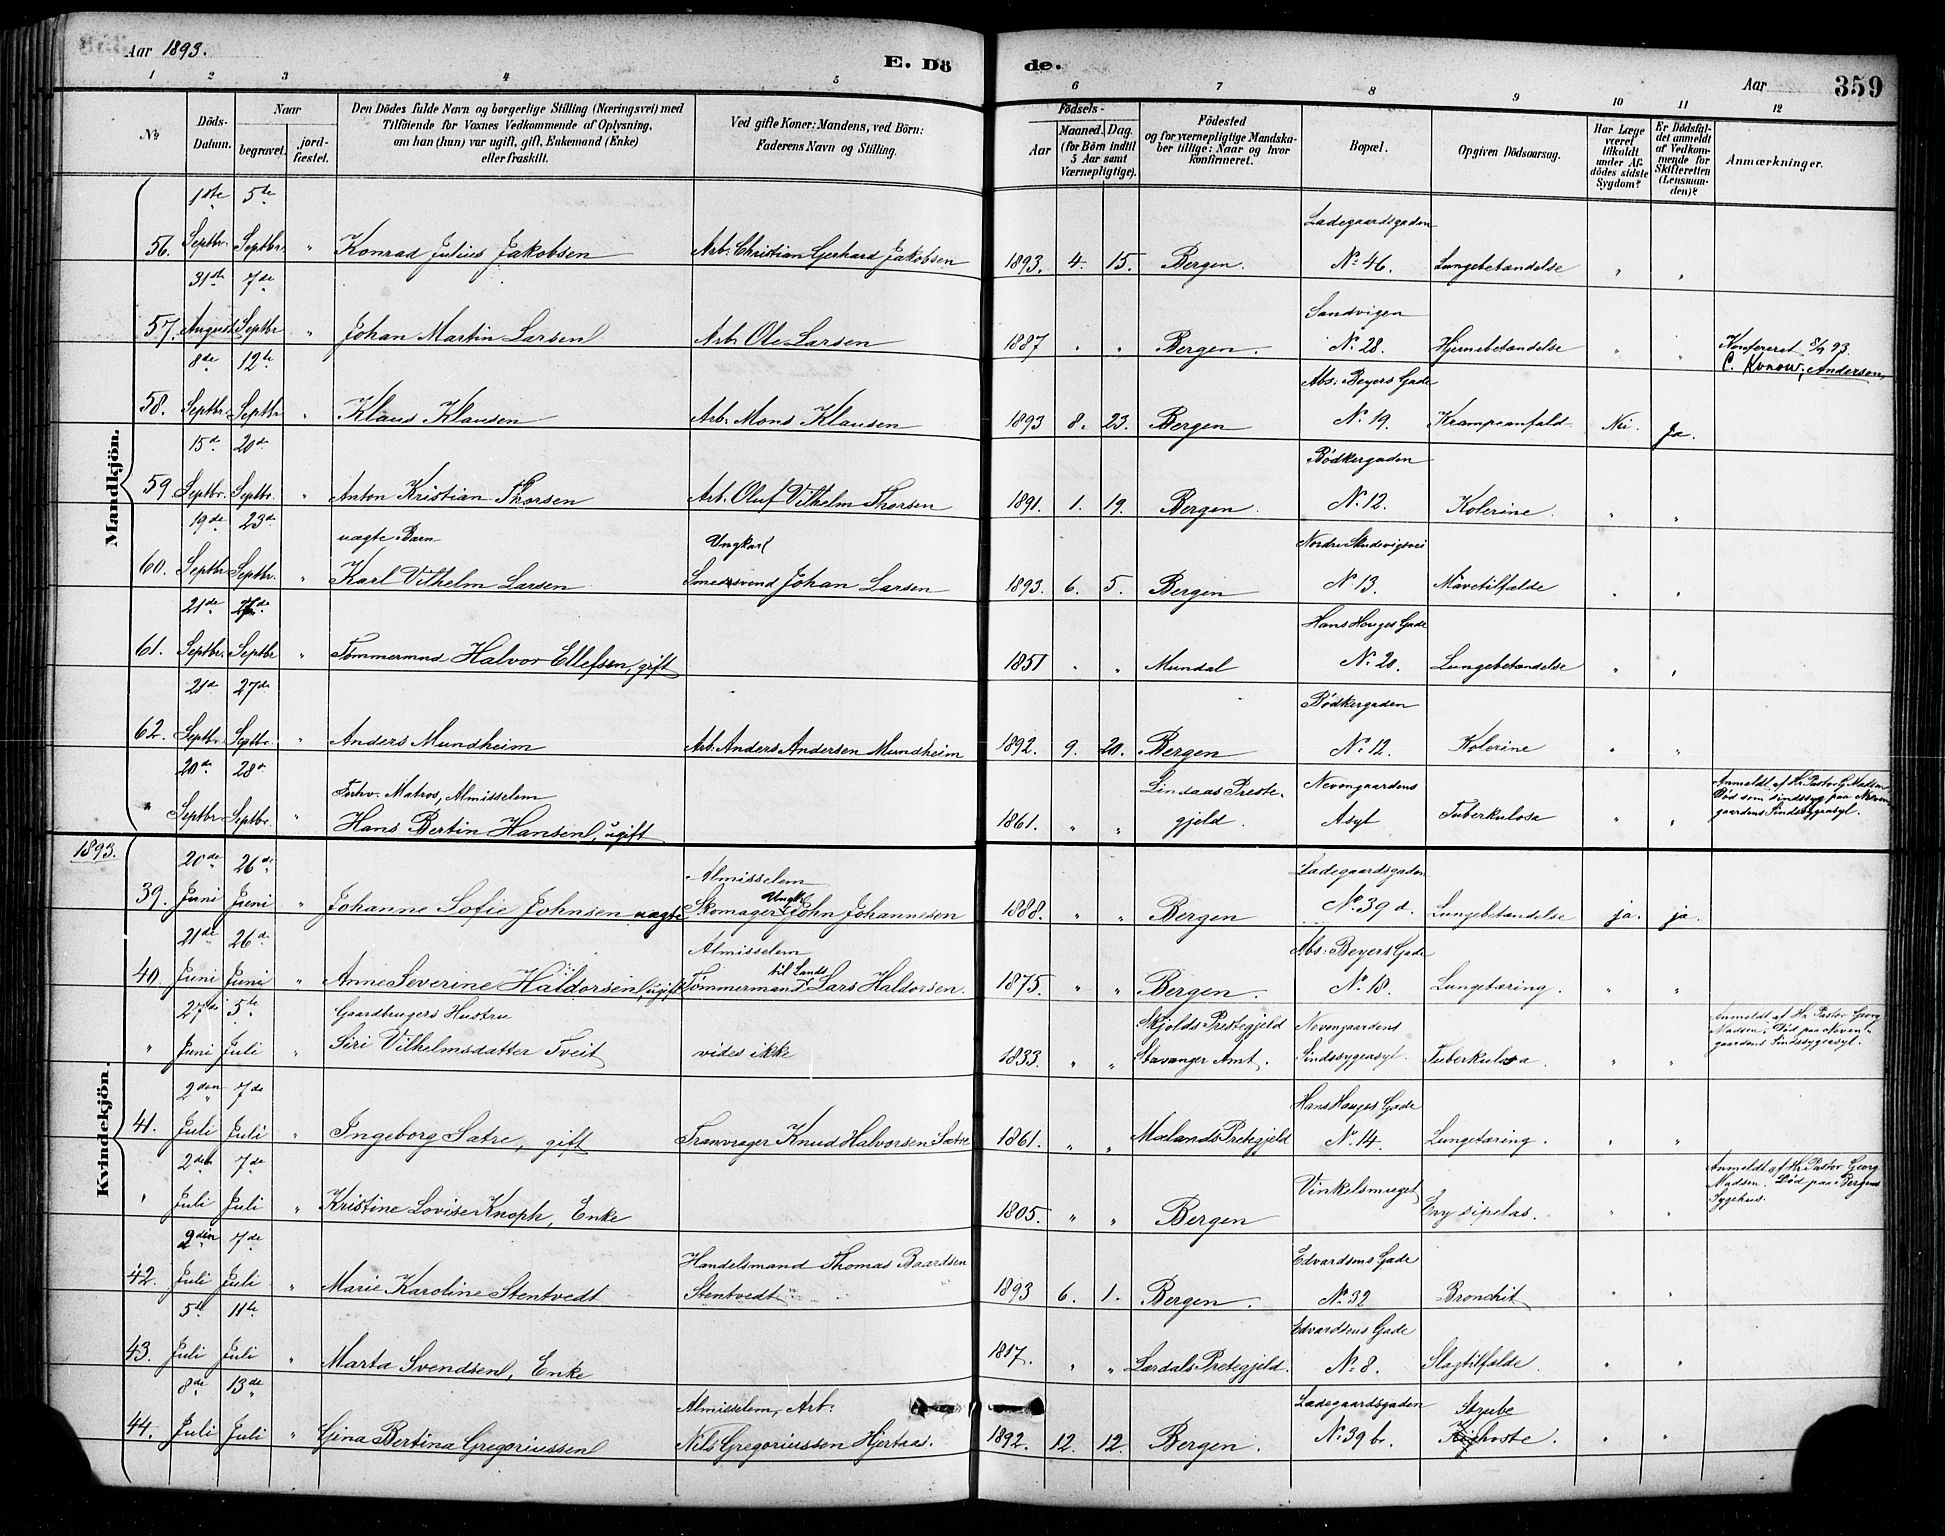 Aar 1893.
E. Dö
de.
Aar
359
1 2 3 4 5 6 7 8 9 10 11 12
No
Döds-Datum.
Naar
begravet.
jord-fæstet.
Den Dödes fulde Navn og borgerlige Stilling (Næringsvei) med
Tilföiende for Voxnes Vedkommende af Oplysning,
om han (hun) var ugift, gift, Enkemand (Enke)
eller fraskilt.
Ved gifte Koner: Mandens, ved Börn:
Faderens Navn og Stilling.
Födsels-
Aar
Maaned. Dag.
(for Börn indtil
5 Aar samt
Værnepligtige).
Födested
og for værnepligtige Mandska-
ber tillige: Naar og hvor
konfirmeret.
Bopæl.
Opgiven Dödsaarsag.
Har Læge
været
tilkaldt
under Af-
dödes sidste
Sygdom?
Er Dödsfal-
det anmeldt
af Vedkom-
mende for
Skifteretten
(Lensman-
den)?
Anmærkninger.
Mandkjön.
1ste 5te Ladegaardsgaden
56. Septbr. Septbr. " Konrad Julius Jakobsen Arb. Christian Gerhard Jakobsen 1893. 4. 15. Bergen. No 46. Lungebetændelse " "
31te 7de Sandvigen
57. August Septbr " Johan Martin Larsen Arb. Ole Larsen 1887 " " Bergen. No 28. Hjernebetændelse " " Konfereret 8/9 93.
C. Konow, Andersen,
8de 12te Abs. Beyers Gade
58. Septbr. Septbr " Klaus Klausen Arb. Mons Klausen 1893 8. 23. Bergen No 19. Krampeanfald Nei Ja.
15de 20de Bödkergaden
59 Septbr. Septbr. " Anton Kristian Thorsen Arb. Oluf Vilhelm Thorsen 1891. 1. 19. Bergen. No 12. Kolerine. " "
19de 23de uægte Barn Ungkarl Nordre Skudevigsvei
60. Septbr. Septbr. " Karl Vilhelm Larsen Smedsvend Johan Larsen 1893. 6. 5. Bergen No 13. Mavetilfælde " "
21de Hans Hauges Gade
61. Septbr. Septbr " Tømmermand Halvor Ellefsen, gift 1851 " " Mundal No 20. Lungebetændelse " "
21de 27de Bödkergaden
62. Septbr. Septbr. " Anders Mundheim Arb. Anders Andersen Mundheim 1892. 9. 20. Bergen No 12. Kolerine " "
20de 28de Forhv. Matros, Almisselem Lindaas Preste- Nevengaardens Anmeldt af Hr. Pastor G. Madsen
" Septbr. Septbr. " Hans Bertin Hansen, ugift 1861. " " gjeld. Asyl Tuberkulosa " " Död som sindssyg paa Neven-
gaardens Sindssygeasyl.
1893.
Kvindekjön.
20de 26de Almisselem Ladegaardsgaden
39. Juni Juni " Johanne Sofie Johnsen uægte Skomager Ungk. John Johannesen 1888. " " Bergen No 39 d. Lungebetændelse ja. ja.
21de 26de Almisselem Abs. Beyers Gade
40. Juni Juni " Anne Severine Haldorsen, ugift Tømmermand til Lands Lars Haldorsen. 1875. " " Bergen. No 18. Lungetæring. " "
27de 5te Gaardbrugers Hustru Skjolds Prestegjeld Nevengaardens Anmeldt af Hr. Pastor Georg
" Juni Juli " Siri Vilhelmsdatter Tveit vides ikke 1833. " " Stavanger Amt. Sindssygeasyl. Tuberkulosa. " " Madsen. Död paa Neven-
gaardens Sindssygeasyl.
2den 7de Hans Hauges Gade
41. Juli Juli " Ingeborg Sætre, gift Tranvrager Knud Halvorsen Sætre 1861. " " Mælands Pretegjeld No 14. Lungetæring. " "
2den 7de Vinkelsmuget Anmeldt af Hr. Pastor Georg
" Juli Juli " Kristine Lovise Knoph, Enke 1805. " " Bergen Erysipelas. " " Madsen. Död paa Bergens
Sygehus.
2den 7de Handelsmand Thomas Baardsen Edvardsens Gade
42. Juli Juli " Marie Karoline Stentvedt Stentvedt 1893 6. 1. Bergen. No 32 Bronchit " "
5te 11te Edvardsens Gade
43. Juli Juli " Marta Svendsen, Enke 1817. " " Lærdals Pretegjeld. No 8. Slagtilfælde. " "
8de 13de Almisselem, Arb. Ladegaardsgaden Strube
44. Juli Juli " Gina Bertina Gregoriussen Nils Gregoriussen Hjertaas. 1892. 12. 12. Bergen. No 39 b. Kighoste. " "